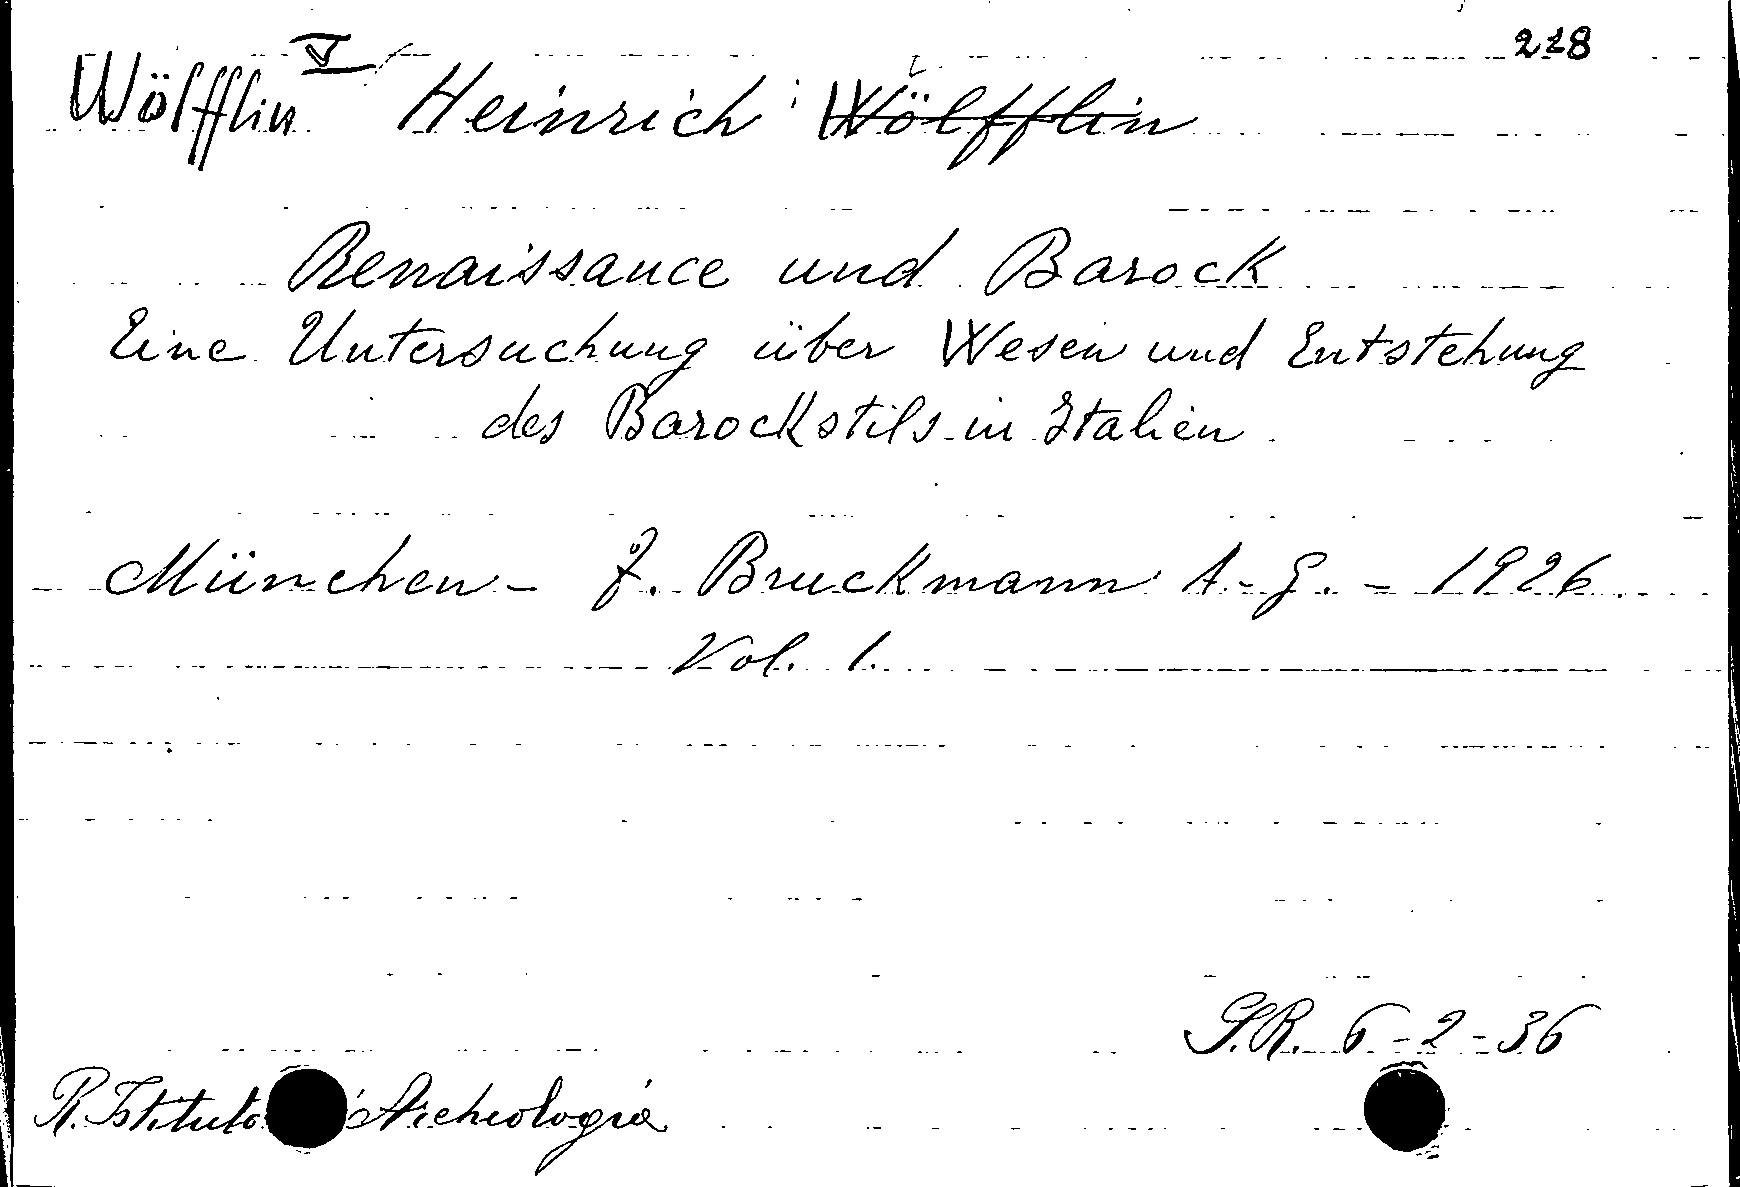 V 218
Wölfflin Heinrich Wölfflin
Renaissance und Barock
Eine Untersuchung über Wesen und Entstehung
des Barockstils in Italien
München - F. Bruckmann A.-G. - 1926
Vol. 1.
S.R. 6-2-36
R. Istituto Archeologia